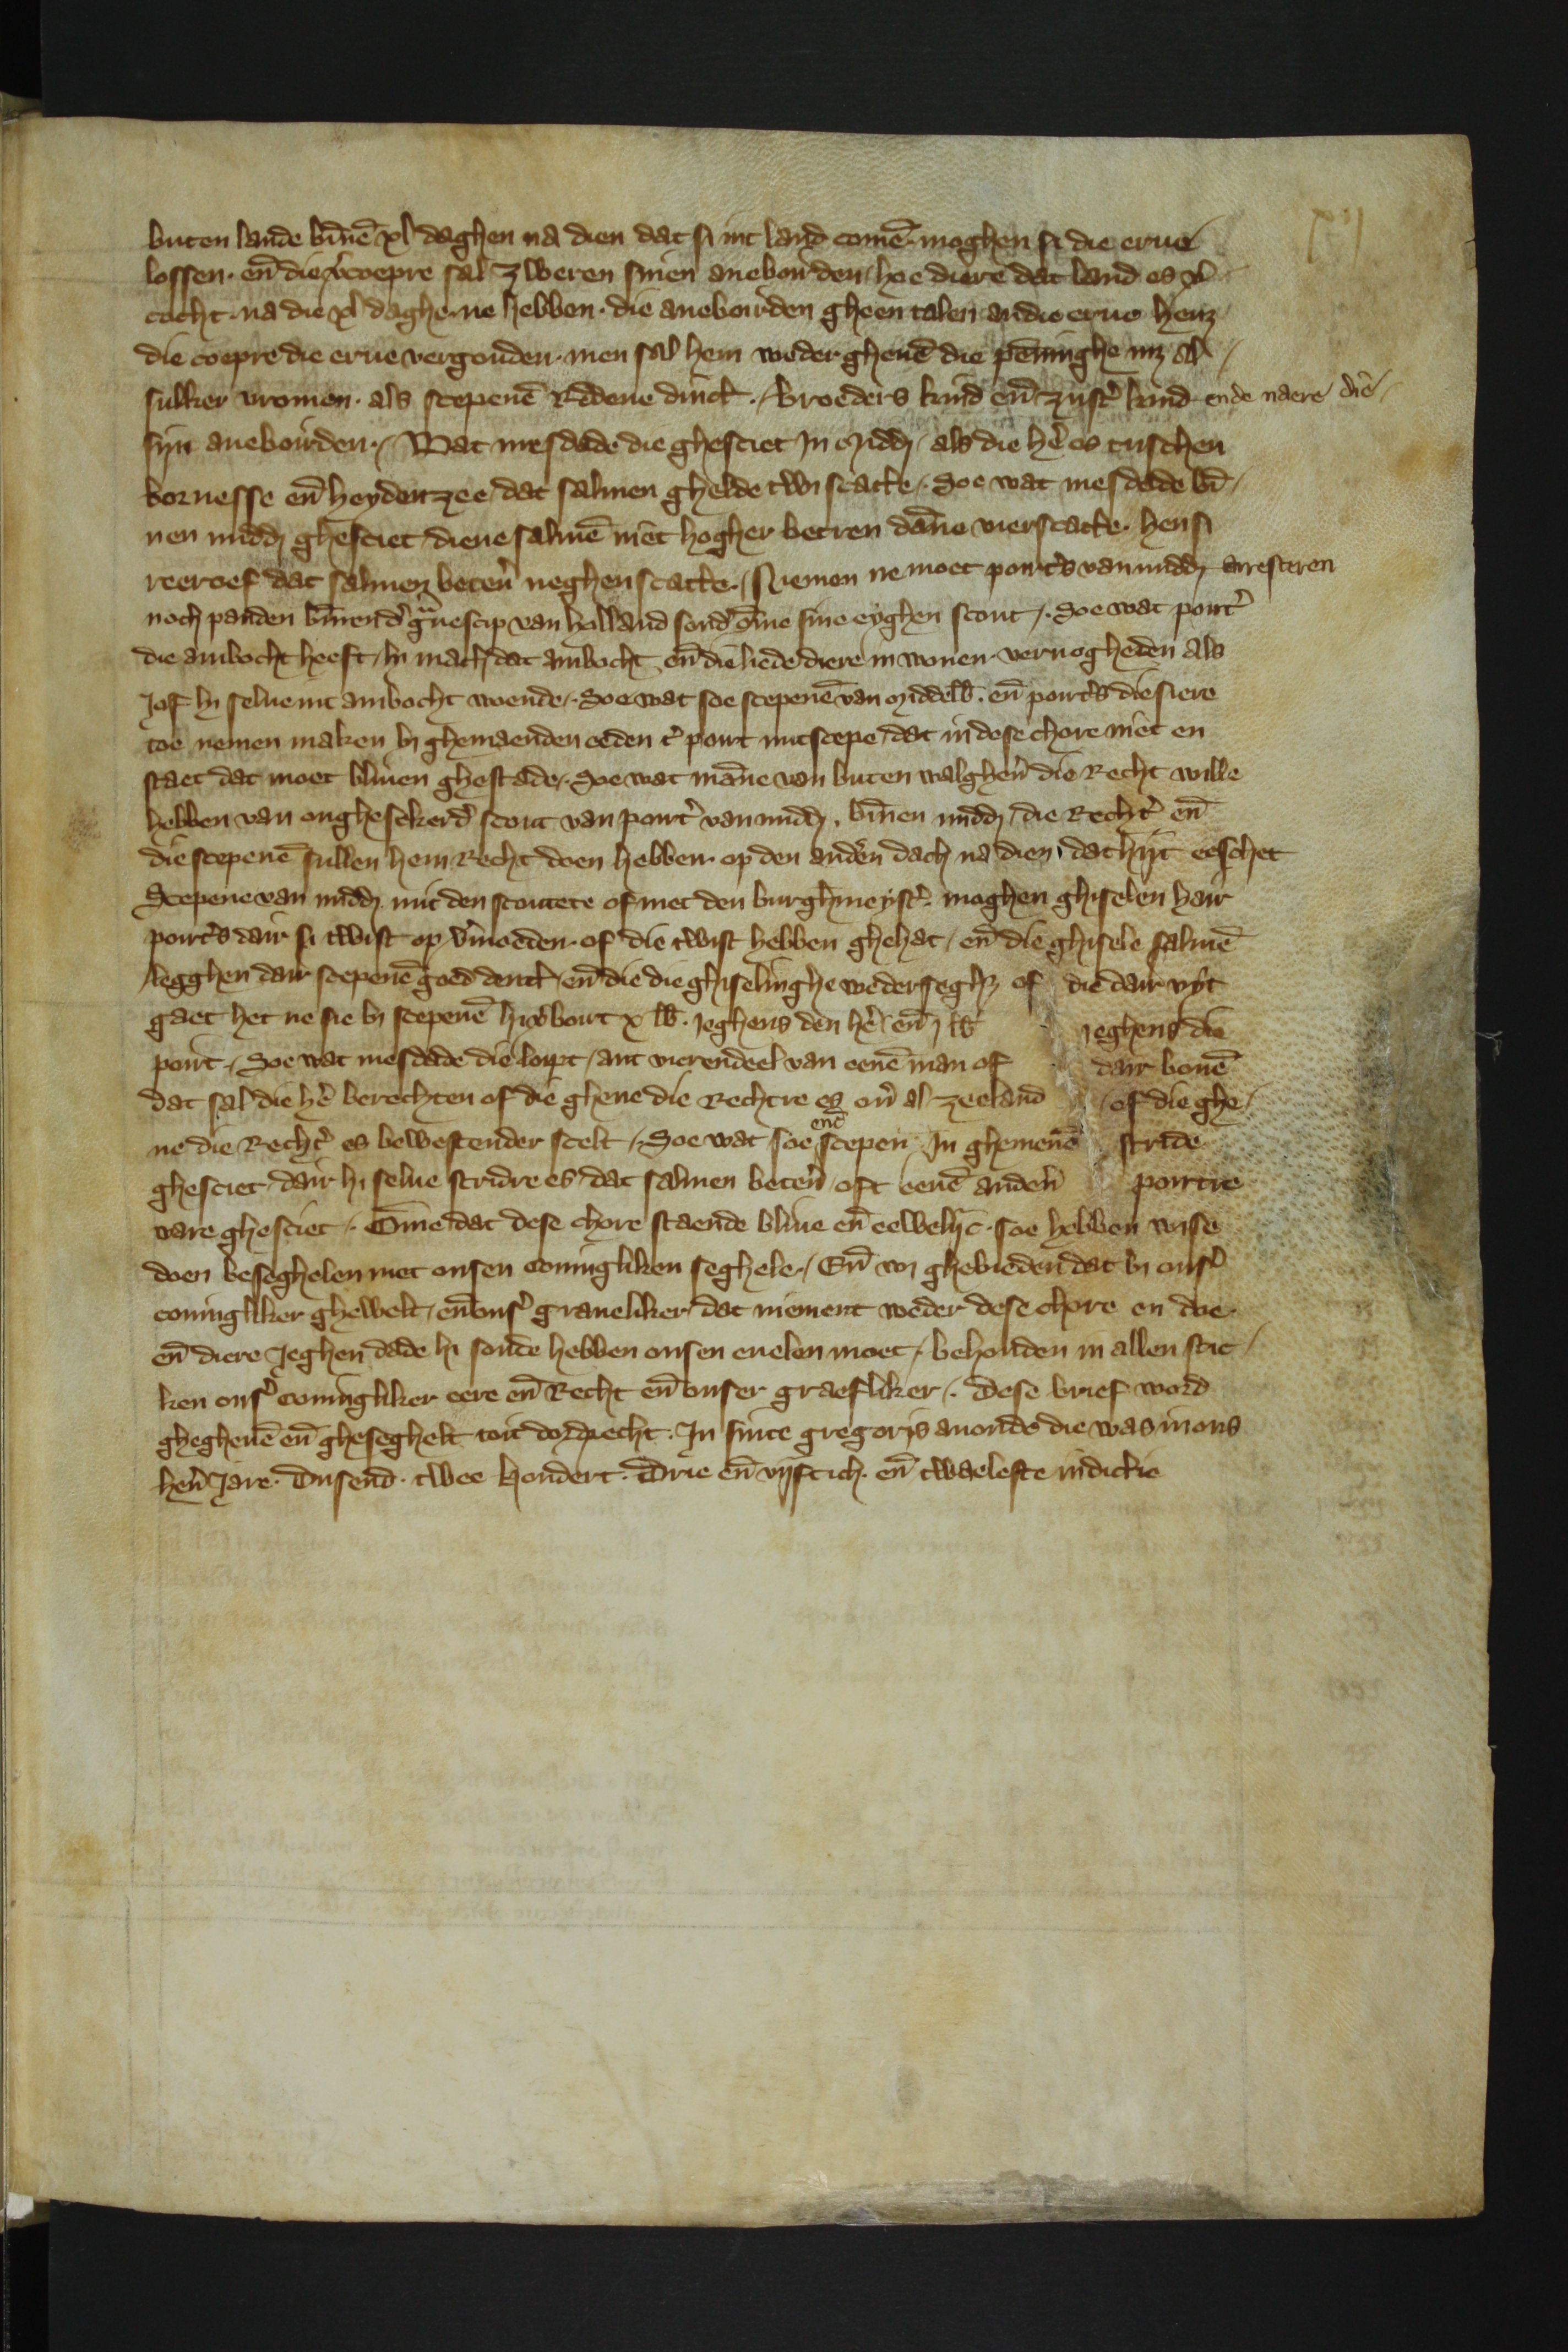 buten lande bīnē xl daghen na dien dat si int land comē moghen si die erue
lossen. en̄ die v͛coepre sal zweren sinen aneboirden hoe diere dat land es v͛
cocht. na die xl daghe. ne hebben. die aneboirden gheen talen an die erue henz
die coepre die erue vergouden. men sal hem weder gheuē die pēninghe mz al
sulker vromen. als scepenē Reddene dinct. broeders kind en̄ zust͛ kind ende naere diē
sijn aneboirden. Wat mesdade die ghesciet in midd als die hē es tuschen
bornesse en̄ heydenzee dat salmen ghelde twiscatte. Soe wat mesdade bī
nen midd ghesciet diene salmē niet hogher betren dāne vierscatte. hen si
reeroef dat salmen beten͛ neghenscatte. Niemen ne moet poirt͛s van midd arresteren
noch panden bīnen d͛ gͣuescip van holland sond͛ ōme sine eyghen scout. Soe wat poirt͛
die ambocht heeft hi mach dat ambocht en̄ die liede diere in wonen vervogheden als
Jof hi selue int ambocht woende. Soe wat soe scepenē van middelb. en̄ poirt͛s diesiere
toe nemen maken bi ghemaenden eeden t͛ poirt nutscepe dat in dese chore niet en
staet dat moet bliuen ghestade. Soe wat māne van buten walghen͛ die Recht wille
hebben van onghesekerd͛ scout van poirt͛ van midd. bīnen midd die Recht͛ en̄
die scepenē sullen hem Recht doen hebben. op den anden͛ dach na dien dat hijt eeschet
Scepene van midd mit den scoutete of met den burghmeyst͛. moghen ghiselen hair
poirt͛s dair si twist op v͛moeden. of die twist hebben ghehat en̄ die ghisele salmē
legghen dair scepenē goed dinct en̄ die die ghiselinghe wedersegh of die dair vyt
gaet het ne sie bi scepenē hi v͛boirt x lb. jeghens den hē en̄ j lb jeghens die
poirt. Soe wat mesdade die loipt ant vierendeel van eenē man of dair bouē
dat sal die hē berechten of die ghene die Rechtre es ou͛ al zeeland of die ghe
ne die Recht͛ es bewestender scelt. Soe wat soe enē scepen in ghemenē stride
ghesciet dair hi selue stridre es dat salmen beten͛ oft eenē anden͛ poirtre
ware ghesciet. Ōme dat dese chore staende bliue en̄ eewelijc. soe hebben wise
doen beseghelen met onsen coningliken seghele. En̄ wi ghebieden dat bi ons͛
coningliker ghewelt en̄ ons͛ graueliker dat niement weder dese chore en doe
en̄ diere Jeghen dade hi soude hebben onsen euelen moet. behouden in allen stic
ken ons͛ coningliker eere en̄ Recht en̄ onser graefliker. Dese brief word
ghegheuē en̄ gheseghelt tot dordrecht. In sinte gregoris auonde die was in ons
hen͛ Jare. Dusend. twee hondert. Drie en̄ vijftich. en̄ twaelefte indictie